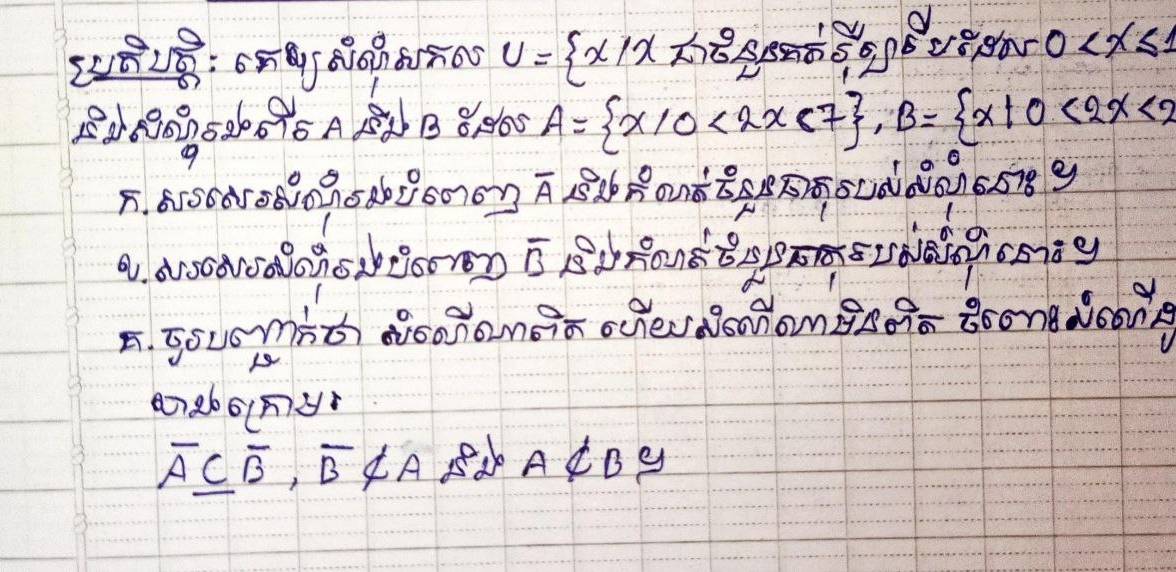 ប្រតិបត្តិ: គេឲ្យសំណុំសកល U = {x/x ជាចំនួនគត់រ៉ឺឡាទីបដែល 0 < x ≤ 1
និងសំណុំរងពីរ A និង B ដែល A = {x/0 < 2x < 7}, B = {x | 0 < 2x < 2
ក. សរសេរសំណុំរងបំពេញ Ā និងកំណត់ចំនួនធាតុរបស់សំណុំនោះ ។
ខ. សរសេរសំណុំរងបំពេញ B̄ និងកំណត់ចំនួនធាតុរបស់សំណុំនោះ ។
គ. ចូរបញ្ជាក់ថា សំណើណាពិត ហើយសំណើណាមិនពិត ចំពោះសំណើនូ
ខាងក្រោម៖
Ā ⊆ B̄ , B̄ ⊄ A និង A ⊄ B ។